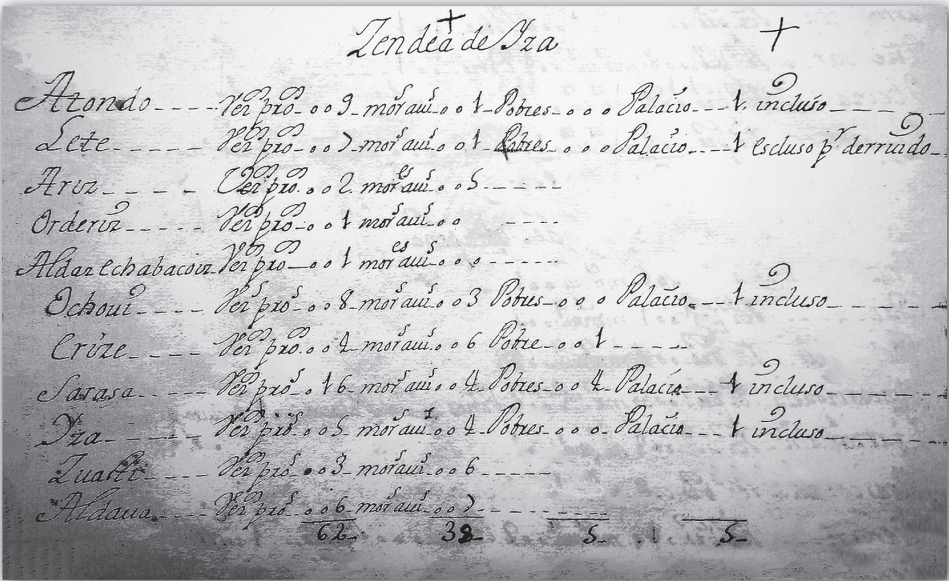 Zendea de Yza
Atondo---- Vez.s pro.s o o 9 moraui.s o o 1 Pobres- o o o Palacio--- 1 incluso----
Lete----- Vez.s pro.s o o 7 moraui.s o o 1 Pobres- o o o Palacio--- 1 escluso p.r derruido--
Ariz---- Vez.s pro. o o 2 moraui.es o o 5-----
Orderiz----- Vez.s pro.s o o 1 moraui.s o o ----
Aldaz echabacoiz Vez.s pro--- o o 1 moraui.es o o o-----
Ochoui----- Vez.s pro.s o o 8 moraui.s o o 3 Pobres- o o o Palacio-- 1 incluso----
Erize----- Vez.s pro. o o 4 moraui.s o o 6 Pobre-- o o 1-----
Sarasa---- Vez.s pro.s o 16 moraui.s o o 4 Pobres- o o 4 Palacio--- 1 incluso----
Yza------ Vez.s pro.s o o 5 moraui.s o o 4 Pobres- o o o Palacio--- 1 incluso----
Zuasti----- Vez.s pro.s o o 3 moraui.s o o 6-----
Aldaua----- Vez.s pro.s o o 6 moraui.s o o 7-----
62- 38- 5- 5-